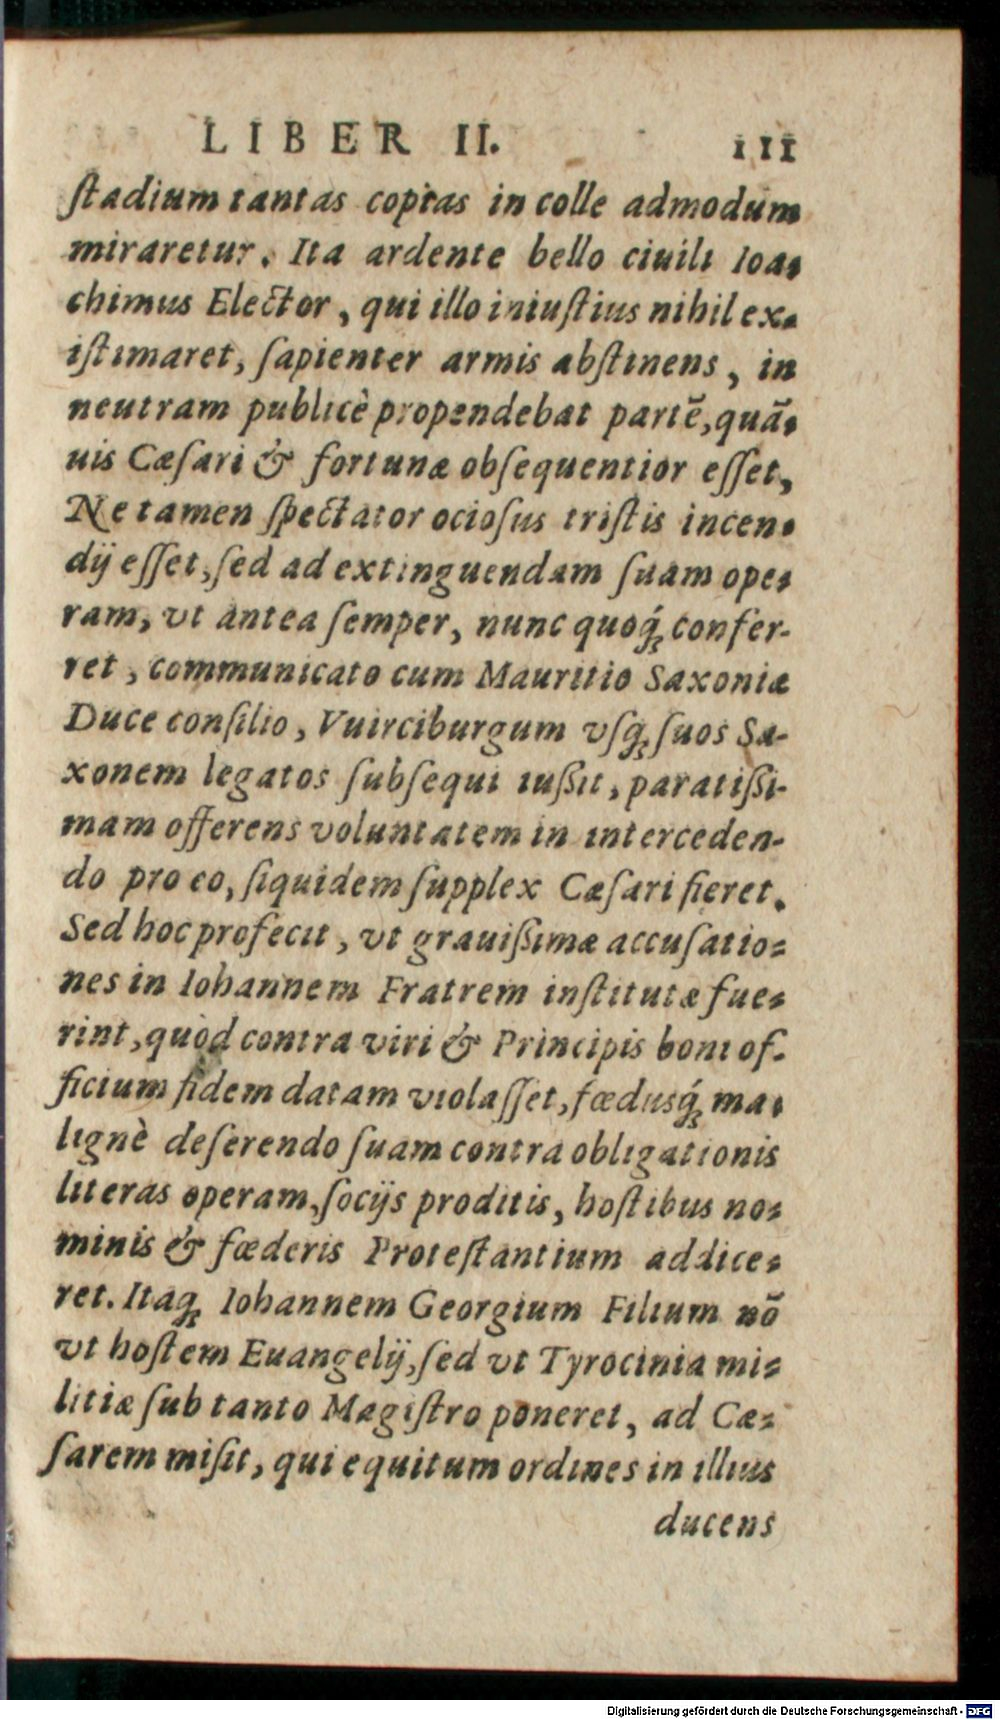 LIBER II. 111
ſtadium tantas copias in colle admodum
miraretur. Ita ardente bello ciuili Ioa-
chimus Elector, qui illo iniuſtius nihil ex-
iſtimaret, ſapienter armis abſtinens, in
neutram publicè propendebat partē, quā-
uis Cæſari & fortunæ obſequentior eſſet,
Ne tamen ſpectator ocioſus triſtis incen-
dij eſſet, ſed ad extinguendam ſuam ope-
ram, vt antea ſemper, nunc quoq́ꝫ confer-
ret, communicato cum Mauritio Saxoniæ
Duce conſilio, Vuirciburgum vſqꝫ ſuos Sa-
xonem legatos ſubſequi iußit, paratißi-
mam offerens voluntatem in interceden-
do pro eo, ſiquidem ſupplex Cæſari fieret.
Sed hoc profecit, vt grauißimæ accuſatio-
nes in Iohannem Fratrem inſtitutæ fue-
rint, quòd contra viri & Principis boni of-
ficium fidem datam violaſſet, fœdusq́ꝫ ma-
lignè deſerendo ſuam contra obligationis
literas operam, ſocijs proditis, hoſtibus no-
minis & fœderis Proteſtantium addice-
ret. Itaqꝫ Iohannem Georgium Filium nō
vt hoſtem Euangelij, ſed vt Tyrocinia mi-
litiæ ſub tanto Magiſtro poneret, ad Cæ-
ſarem miſit, qui equitum ordines in illius
ducens
Digitalisierung gefördert durch die Deutsche Forschungsgemeinschaft - DFG